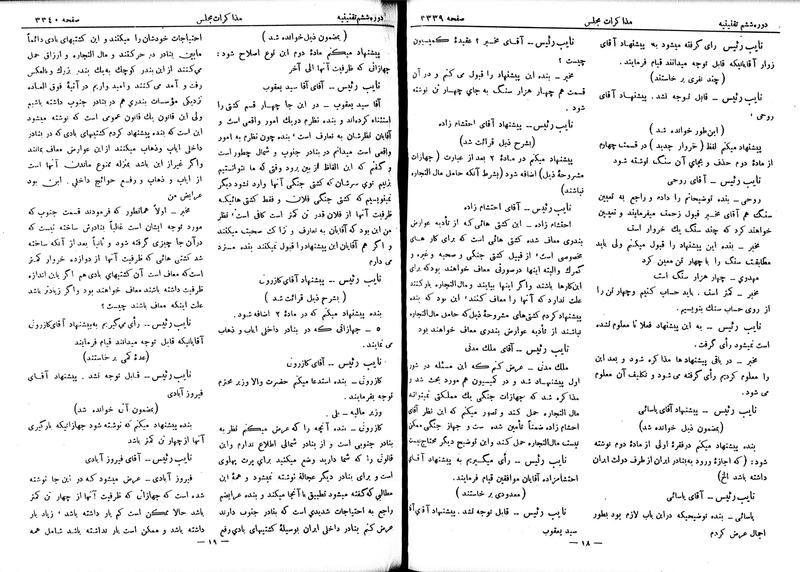 دوره ششم تقنینیه
مذاکرات مجلس
صفحه ۳۳۳۹
نایب رئیس رأی گرفته میشود به پیشنهاد آقای
زوار آقایانیکه قابل توجه میدانند قیام فرمایند.
(چند نفری بر خاستند)
نایب رئیس – قابل توجه نشد. پیشنهاد آقای
روحی؛
(این‌طور خوانده شد)
پیشنهاد میکنم لفظ (خروار جدید) در قسمت چهارم
از ماده دوم حذف و بجای آن سنگ نوشته شود
نایب رئیس – آقای روحی
روحی – بنده توضیحاتم را داده و راجع به تعیین
سنگ هم آقای مخبر قبول زحمت میفرمایند و تعیین
خواهند کرد که چند سنگ یك خروار است
مخبر – بنده این پیشنهاد را قبول میکنم ولی باید
مطابقش سنگ را با چهار تن معین کرد
مهدوی – چهار هزار سنگ است
مخبر – کمتر است. باید حساب کنیم وچهار تن را
از روی حساب سنك بنویسیم.
نایب رئیس – به این پیشنهاد فعلا تا معلوم نشده
است نمیشود رأی گرفت.
مخبر – در باقی پیشنهادها مذاکره شود و بعد این
را معلوم کردیم رأی گرفته می‌شود و تکلیف آن معلوم
می شود.
نایب رئیس – پیشنهاد آقای یاسائی
(بمضمون ذیل خوانده شد)
بنده پیشنهاد میکنم درفقرۀ اولی از مادۀ دوم نوشته
شود: (که اجازۀ ورود به‌بنادر ایران از طرف دولت ایران
داشته باشد الخ)
نایب رئیس – آقای یاسائی
یاسائی – بنده توضیحیکه دراین باب لازم بود بطور
اجمال عرض کردم
نایب رئیس – آقای مخبر؟ عقیدۀ کمیسیون
چیست؟
مخبر – بنده این پیشنهاد را قبول می کنم و در آن
قسمت هم چهار هزار سنگ به جای چهار تن نوشته
شود.
نایب رئیس – پیشنهاد آقای احتشام زاده
(بشرح ذیل قرائت شد)
پیشنهاد میکنم در مادۀ ۲ بعد از عبارت (جهازات
مشروحۀ ذیل) اضافه شود (بشرط آنکه حامل مال‌التجاره
نباشند)
نایب رئیس – آقای احتشام زاده
احتشام زاده – این کشتی هائی که از تأدیه عوارض
بندری معاف شده کشتی هائی است که برای کار های
مخصوصی است؛ از قبیل کشتی جنگی و صحیه وغیره و
گمرك والبته اینها درصورتی معاف خواهند بودکه برای
این‌کارها باشند واگر اینها بیایند و مال‌التجاره بار کنند
علت ندارد که آنها را معاف کنند؛ این بود که بنده
پیشنهاد کردم کشتی‌های مشروحۀ ذیل‌که حامل مال‌التجاره
نباشند از تأدیه عوارض بندری معاف خواهند بود
نایب رئیس – آقای ملك مدنی
ملك مدنی – عرض کنم که این مسئله در شور
اول پیشنهاد شد و در کمیسیون هم مورد بحث شد و
مذاکره شد که جهازات جنگی یك مملکتی نمیتوانند
مال‌التجاره حمل کنند و تصور میکنم که این نظر آقای
احتشام زاده ضمناً تأمین شده است و جهاز جنگی ممکن
نیست مال‌التجاره حمل کنند و این توضیح دیگر محتاج نیست
نایب رئیس – رأی میگیریم به پیشنهاد آقای
احتشام‌زاده آقایان موافقین قیام فرمایند.
(معدودی بر خاستند)
نایب رئیس – قابل توجه نشد. پیشنهاد آقای آقا
سید یعقوب
– ۱۸ –
دوره ششم تقنینیه
مذاکرات مجلس
صفحه ۳۳۴۰
(بمضمون ذیل خوانده شد)
پیشنهاد میکنم مادۀ دوم این نوع اصلاح شود:
جهازاتی که ظرفیت آنها الی آخر
نایب رئیس – آقای آقا سید یعقوب
آقا سید یعقوب – در این جا چهار قسم کشتی را
استثناء کرده‌اند و بنده نظرم دریك امور واقعی است و
آقایان نظرشان به تعارف است؛ بنده چون نظرم به امور
واقعی است میدانم در بنادر جنوب و شمال چطور است
و گفتم که این الفاظ از بین برود وقتی که ما نتوانستیم
بزنیم توی سرشان که کشتی جنگی آنها وارد نشود دیگر
ننویسیم که کشتی جنگی فلان و فقط کشتی هائیکه
ظرفیت آنها از فلان قدر تن کمتر است کافی است؛ نظر
من این بود که آقایان به تعارف و نزاکت صحبت میکنند
و اگر هم آقایان این پیشنهاد را قبول نمیکنند بنده مسترد
می دارم
نایب رئیس – پیشنهاد آقای کازرونی
(بشرح ذیل قرائت شد)
بنده پیشنهاد میکنم که در مادۀ ۲ اضافه شود.
۵ – جهازاتی که در بنادر داخلی ایاب و ذهاب
می نمایند.
نایب رئیس – آقای کازرونی
کازرونی – بنده استدعا میکنم حضرت والا وزیر محترم
توجه بفرمایند.
وزیر مالیه – بلی.
کازرونی – بنده آنچه را که عرض میکنم نظر به
بنادر جنوبی است و از بنادر شمالی اطلاع ندارم واین
قانونی را که شما دارید وضع میکنید برای پرت پهلوی
است و برای بنادر دیگر عجالة نوشته نمیشود و همۀ این
مطالبی‌که‌گفته میشود تطبیق باآنجا میکند و بنده عرایضم
راجع به احتیاجات شدیدی است که بنادر جنوب دارند
عرض کنم بنادر داخلی ایران بوسیلۀ کشتیهای بادی رفع
احتیاجات خودشان را میکنند و این کشتیهای بادی دائماً
مابین بنادر در حرکتند و مال التجاره و ارزاق حمل
می‌کنند از این بندر کوچك به‌یك بندر بزرك و بالعکس
رفت و آمد می کنند و امید واریم در آتیۀ فوق العاده
نزدیکی مؤسسات بندری هم در بنادر جنوب داشته باشیم
ولی این قانون یك قانون عمومی است که نوشته میشود
این است که بنده پیشنهاد کردم کشتیهای بادی که در بنادر
داخلی ایاب وذهاب میکنند از این عوارض معاف بمانند
واگر غیراز این باشد بمنزله ممنوع ماندن آنها است
از ایاب و ذهاب و رفع حوائج داخلی. این بود
عرایض من
مخبر – اولاً همانطور که فرمودند قسمت جنوب که
مورد توجه ایشان است غالباً بنادرش ساخته نیست که
درآن جا چیزی گرفته شود و ثانیاً بعد از آنکه ساخته
شد کشتی هائی که ظرفیت آنها از دوازده خروار کمتر
است‌که معاف است آن کشتیهای بادی هم اگر باین اندازه
ظرفیت داشته باشند معاف خواهند بود واگر زیادتر باشد
علت اینکه معاف باشند چیست؟
نایب رئیس – رأی می‌گیریم به‌پیشنهاد آقای‌کازرونی
آقایانیکه قابل توجه میدانند قیام فرمایند
(عدۀ کمی بر خاستند)
نایب رئیس – قابل توجه نشد. پیشنهاد آقای
فیروز آبادی
(بمضمون آتی خوانده شد)
بنده پیشنهاد میکنم که نوشته شود جهازاتیکه بارگیری
آنها ازچهار تن کمتر باشد
نایب رئیس – آقای فیروز آبادی
فیروز آبادی – عرض میشود که در این جا نوشته
شده است که جهازاتی که ظرفیت آنها از چهار تن کمتر
باشد حالا ممکن است کم بار داشته باشد؛ زیاد بار
داشته باشد و ممکن است بار نداشته باشد شامل همه
– ۱۹ –